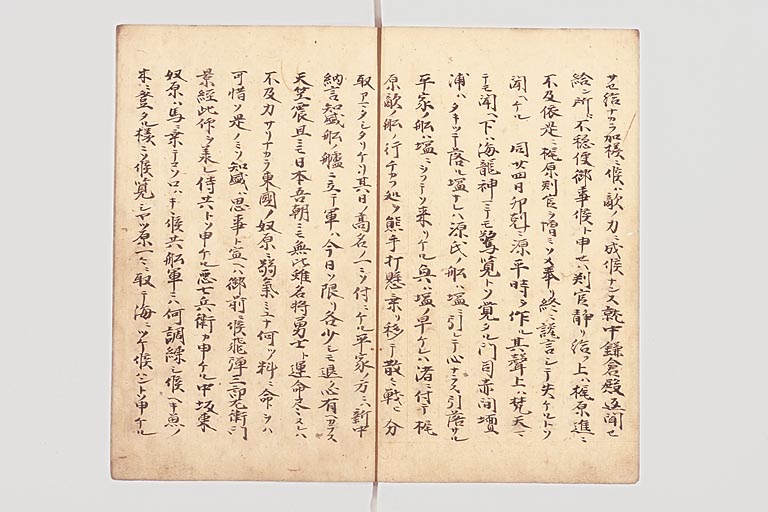 サセ給ナカラ加様ニ候ハ敵ノ力ニ成候ナンス就中鎌倉殿返聞セ
給ン所ト不穏便御事候ト申セハ判官静リ給フ上ハ梶原進ミ
不及依是ニ梶原判官ヲ憎ミソメ奉リ終ニ讒言シテ失ケルトソ
聞ヘケル 同廿四日卯剋ニ源平時ヲ作ル其聲上ハ梵天マ
テモ聞ヘ下ハ海龍神ニテモ驚覧トソ覚タル門司赤間壇
浦ハタキツテ落ル塩ナレハ源氏ノ船ハ塩ニ引レテ心ナラス引落サル
平家ノ船ハ塩ニヲフテソ来リケル奥ハ塩ノ早ケレハ渚ニ付テ梶
原敵ノ船ノ行チカフ処ヲ熊手打懸乗リ移テ散々ニ戦ヒ分
取アマタシタリケリ其日ノ高名ノ一ニソ付ニケル平家方ニハ新中
納言知盛船ノ艫ニ立テ軍ハ今日ヲ限リ各少シモ退ク心有ヘカラス
天竺震旦ニモ日本吾朝ニモ無比雖名将勇士ト運命尽ヌレハ
不及力サリナカラ東國ノ奴原ニ弱氣ミユナ何ノ料ニ命ヲハ
可惜ソ是ノミソ知盛ハ思事ト宣ヘハ御前ニ候飛彈三郎左衛門
景経此仰ヲ承レ侍共トソ申ケル悪七兵衛カ申ケル中坂東
奴原ハ馬ニ乗テコソ口ハキ候共船軍ニハ何調練シ候ヘキ魚ノ
木ニ登タル様ニソ候覧シヤツ原一々ニ取テ海ニツケ候ハントソ申ケル